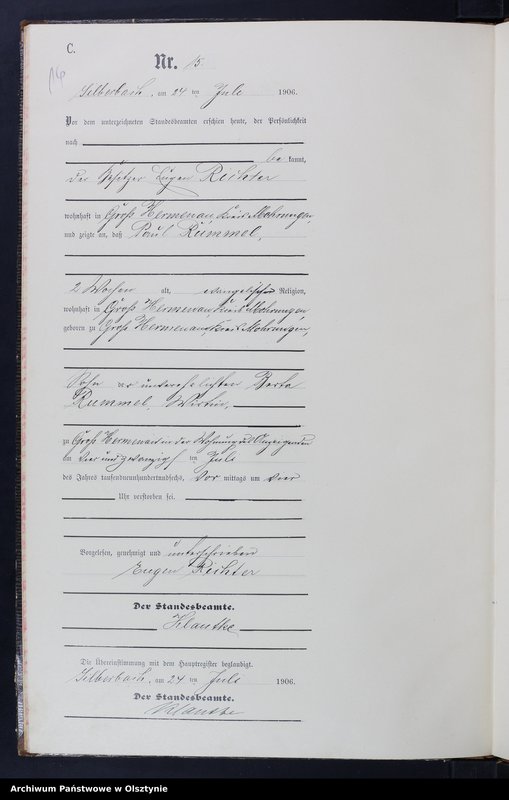 C.
Nr. 15.
Silberbach, am 24 ten Juli 1906.
Vor dem unterzeichneten Standesbeamten erschien heute, der Persönlichkeit
nach
be kannt,
der Besitzer Eugen Reihter
wohnhaft in Groß Hermenau, Kreis Mohrungen,
und zeigte an, daß Paul Rummel,
2 Wochen alt, evangelischer Religion,
wohnhaft in Groß Hermenau Kreis Mohrungen,
geboren zu Groß Hermenau, Kreis Mohrungen,
Sohn der unverehelichten Berta
Rummel, Wirtin,
zu Groß Hermenau in der Wohnung des Anzeigenden
am vier und zwanzigsten Juli
des Jahres tausendneunhundertundsechs, Vor mittags um vier
Uhr verstorben sei.
Vorgelesen, genehmigt und unterschrieben
Eugen Reihter
Der Standesbeamte.
Klautke
Die Übereinstimmung mit dem Hauptregister beglaubigt.
Silberbach, am 24 ten Juli 1906.
Der Standesbeamte.
Klautke
Archiwum Państwowe w Olsztynie